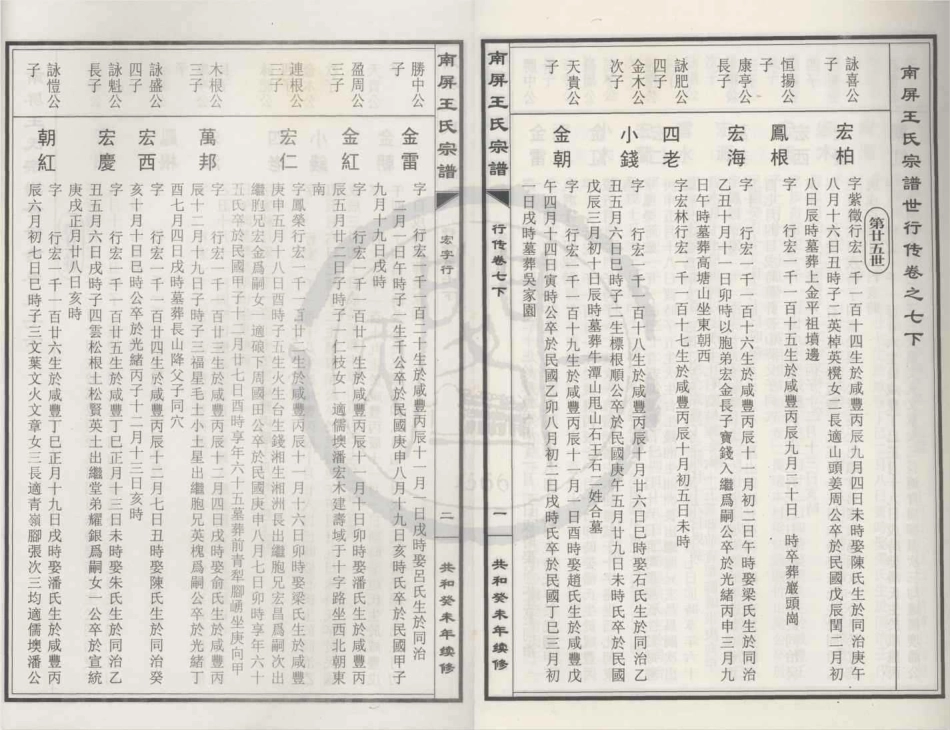 南屏王氏宗譜世行传卷之七下
第廿五世
詠喜公
子
宏柏
字紫微行宏一千一百十四生於咸豐丙辰九月四日未時娶陳氏生於同治庚午
八月十六日丑時子二英棹英欉女二長適山頭姜周公卒於民國戊辰閏二月初
八日辰時墓葬上金平祖墳邊
恒揚公
子
鳳根
字 行宏一千一百十五生於咸豐丙辰九月二十日 時卒葬巖頭崗
康亭公
長子
宏海
字 行宏一千一百十六生於咸豐丙辰十一月初二日午時娶梁氏生於同治
乙丑十月十一日卯時以胞弟宏金長子寶錢入繼爲嗣公卒於光緒丙申三月九
日午時墓葬高塘山坐東朝西
詠肥公
四子
四老
字宏林行宏一千一百十七生於咸豐丙辰十月初五日未時
金木公
次子
小錢
字 行宏一千一百十八生於咸豐丙辰十月廿六日巳時娶石氏生於同治乙
丑五月六日巳時子二生標根順公卒於民國庚午五月廿九日未時氏卒於民國
戊辰三月初十日辰時墓葬牛潭山甩山石王石二姓合墓
天貴公
子
金朝
字 行宏一千一百十九生於咸豐丙辰十一月一日酉時娶趙氏生於咸豐戊
午四月十四日寅時公卒於民國乙卯八月初二日戌時氏卒於民國丁巳三月初
一日戌時墓葬吳家園
南屏王氏宗譜
行传卷七下
一
共和癸未年续修
南屏王氏宗譜
宏字行
二
共和癸未年续修
勝中公
子
金雷
字 行宏一千一百二十生於咸豐丙辰十一月一日戌時娶呂氏生於同治
二月一日午時子一生千公卒於民國庚申八月十九日亥時氏卒於民國甲子
九月十九日戌時
盈周公
三子
金紅
字 行宏一千一百廿一生於咸豐丙辰十一月十日卯時娶潘氏生於咸豐丙
辰五月廿二日子時子一仁枝女一適儒墺潘宏木建壽域于十字路坐西北朝東
南
連根公
三子
宏仁
字鳳榮行宏一千一百廿二生於咸豐丙辰十一月十六日卯時娶梁氏生於咸豐
庚申五月十八日酉時子五生火生台生錢湘生湘洲長出繼胞兄宏昌爲嗣次出
繼胞兄宏金爲嗣女一適硠下周國田公卒於民國庚申八月七日卯時享年六十
五氏卒於民國甲子十二月廿七日酉時享年六十五墓葬前青犁腳硧坐庚向甲
木根公
三子
萬邦
字 行宏一千一百廿三生於咸豐丙辰十二月四日戌時娶俞氏生於咸豐丙
辰十二月十九日子時子三福星毛土小土星出繼胞兄英槐爲嗣公卒於光緒丁
酉七月四日戌時墓葬長山降父子同穴
詠盛公
四子
宏西
字 行宏一千一百廿四生於咸豐丙辰十二月七日丑時娶陳氏生於同治癸
亥十月十日巳時公卒於光緒丙子十二月十三日亥時
詠魁公
長子
宏慶
字 行宏一千一百廿五生於咸豐丁巳正月十三日未時娶朱氏生於同治乙
丑五月六日戌時子四雲松根土松賢英土出繼堂弟耀銀爲嗣女一公卒於宣統
庚戌正月廿八日亥時
詠愷公
子
朝紅
字 行宏一千一百廿六生於咸豐丁巳正月十九日戌時娶潘氏生於咸豐丙
辰六月初七日巳時子三文葉文火文章女三長適青嶺腳張次三均適儒墺潘公